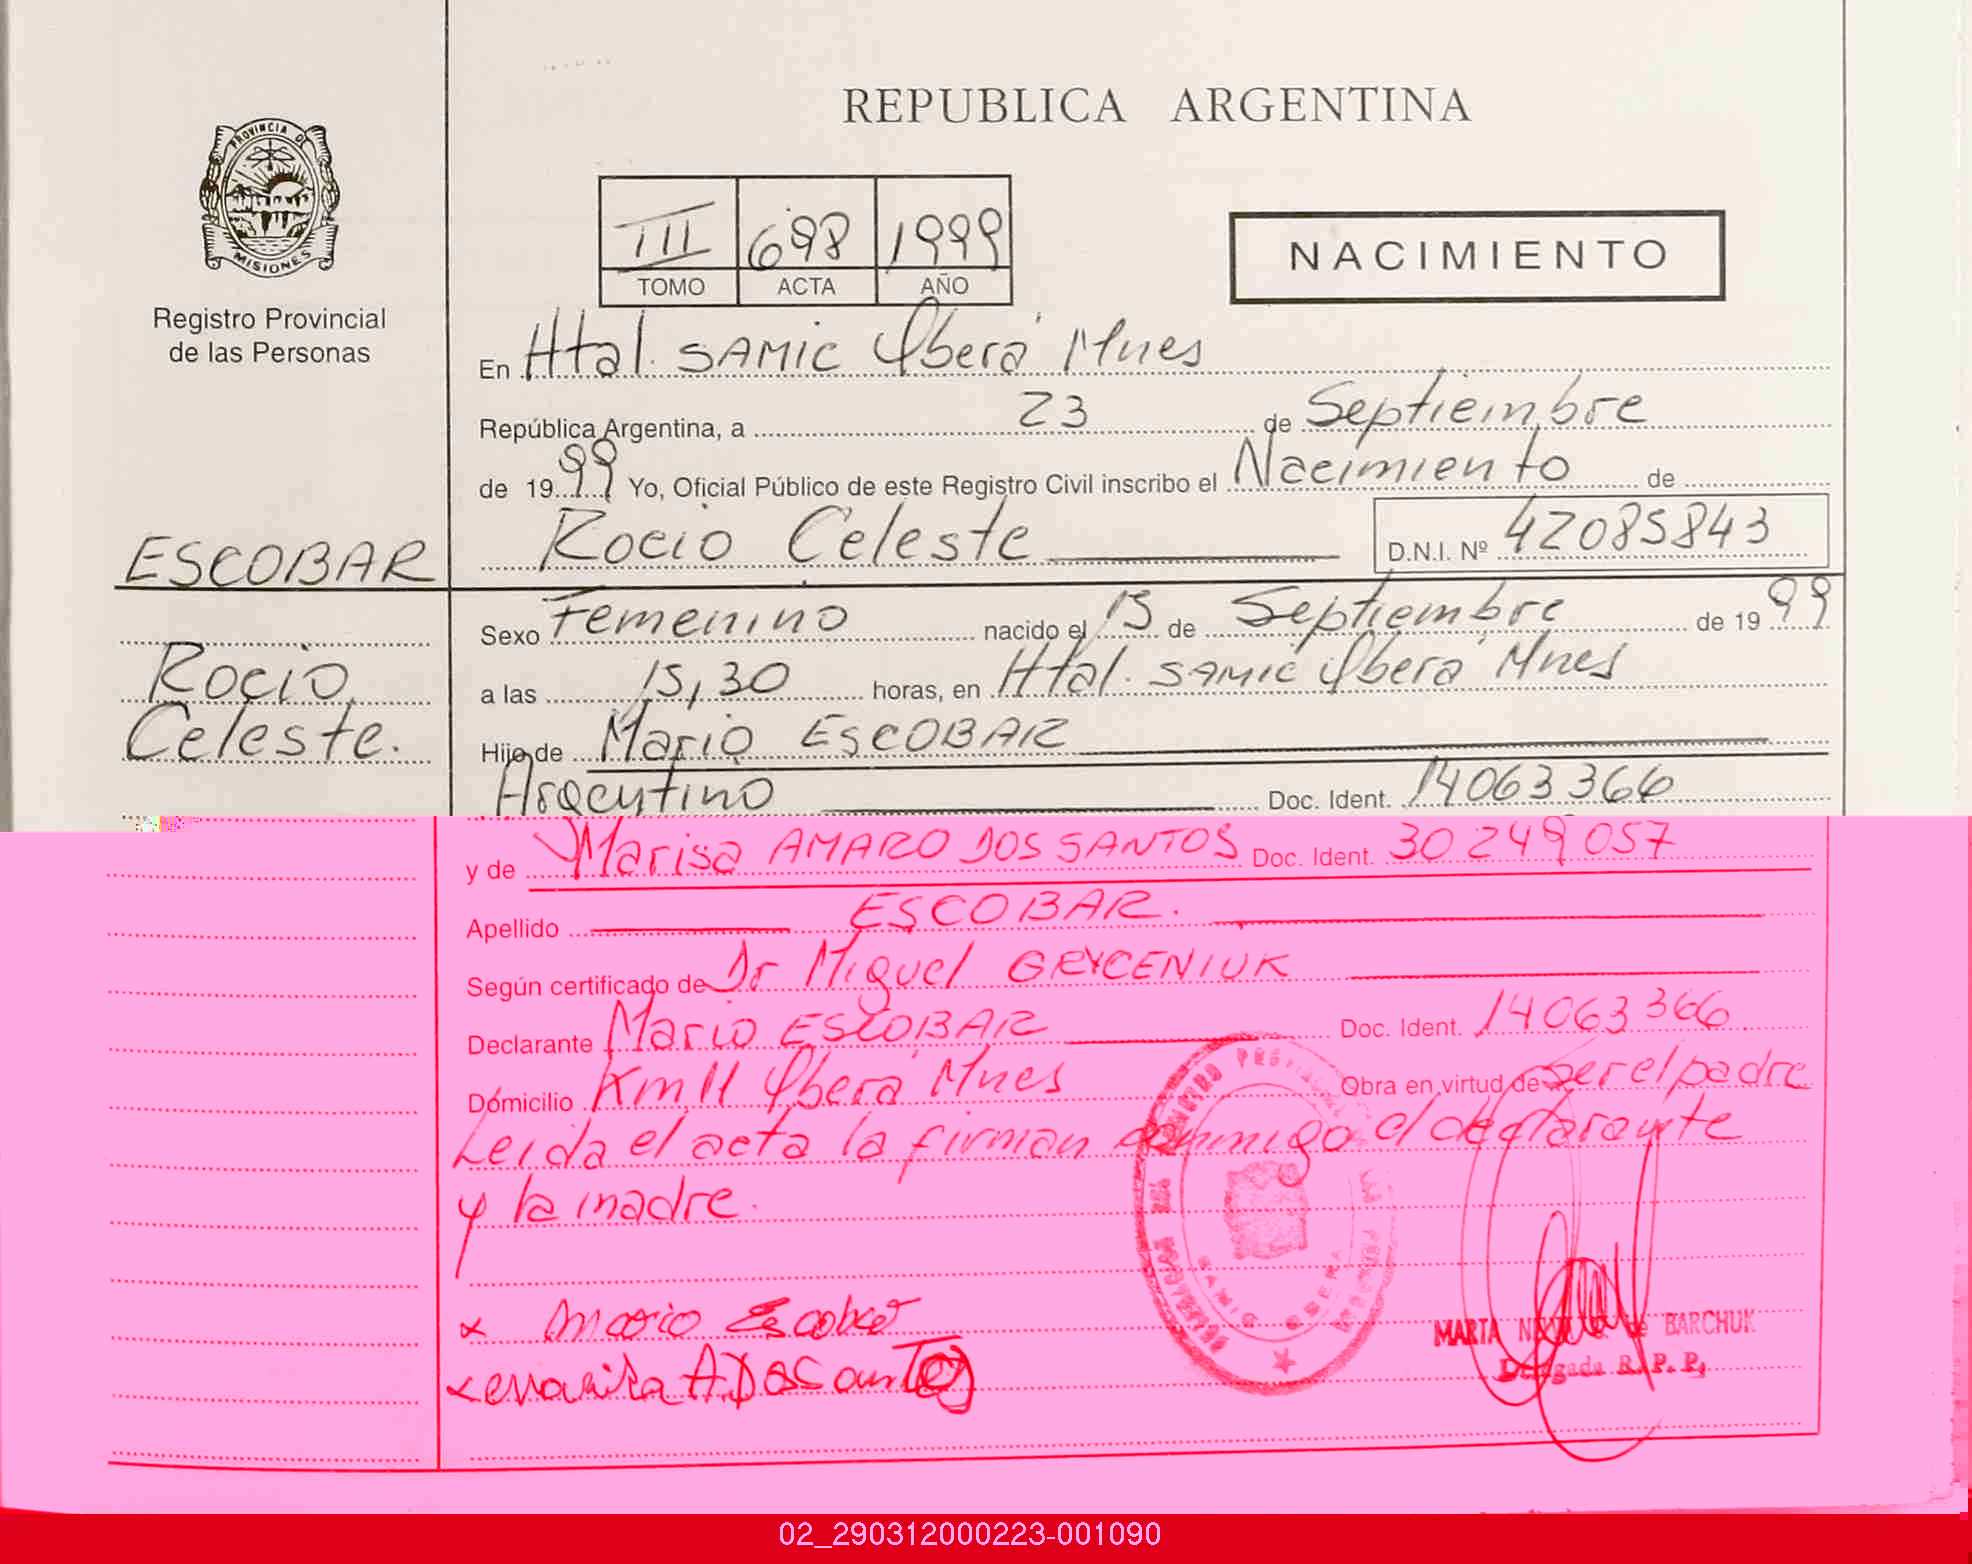 REPUBLICA ARGENTINA
PROVINCIA DE
MISIONES
Registro Provincial
de las Personas
III 698 1999
TOMO ACTA AÑO
NACIMIENTO
En Htal. SAMIC Oberá Mnes
República Argentina, a 23 de Septiembre
de 1999 Yo, Oficial Público de este Registro Civil inscribo el Nacimiento de
ESCOBAR Rocio Celeste D.N.I. Nº 42085843
Sexo Femenino nacido el 15 de Septiembre de 1999
Rocio a las 15,30 horas, en Htal. SAMIC Oberá Mnes
Celeste. Hijo de Mario ESCOBAR
Argentino Doc. Ident. 14063366
y de Marisa AMARO DOS SANTOS Doc. Ident. 30249057
Apellido ESCOBAR.
Según certificado de Dr Miguel GRYCENIUK
Declarante Mario ESCOBAR Doc. Ident. 14063366
Domicilio Km 11 Oberá Mnes Obra en virtud de ser el padre
Leida el acta la firman conmigo el declarante
y la madre.
x Mario Escobar
MARTA de BARCHUK
Delegada R. P. P.
SAMIC OBERA
02_290312000223-001090